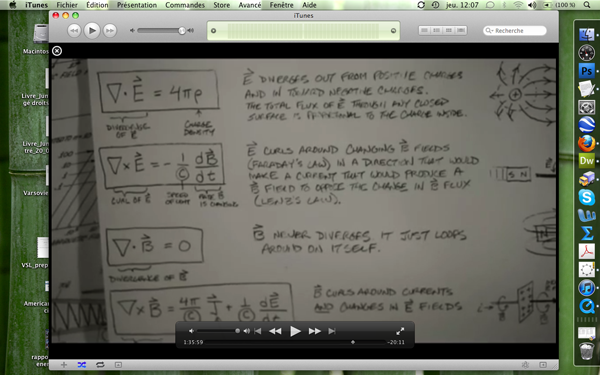 iTunes Fichier Édition Présentation Commandes Store Avancé Fenêtre Aide
jeu. 12:07
(100 %)
iTunes
Recherche
Macintos
Livre_Jun
Varsovie
VSL_prep
American
rappo
∇·E⃗ = 4πρ
DIVERGENCE OF E⃗
CHARGE DENSITY
E⃗ DIVERGES OUT FROM POSITIVE CHARGES
AND IN TOWARD NEGATIVE CHARGES.
THE TOTAL FLUX OF E⃗ THROUGH ANY CLOSED
SURFACE IS PROPORTIONAL TO THE CHARGE INSIDE.
∇×E⃗ = - 1/C dB⃗/dt
CURL OF E⃗
SPEED OF LIGHT
RATE B⃗ IS CHANGING
E⃗ CURLS AROUND CHANGING B⃗ FIELDS
(FARADAY'S LAW) IN A DIRECTION THAT WOULD
MAKE A CURRENT THAT WOULD PRODUCE A
B⃗ FIELD TO OPPOSE THE CHANGE IN B⃗ FLUX
(LENZ'S LAW).
S N
∇·B⃗ = 0
DIVERGENCE OF B⃗
B⃗ NEVER DIVERGES, IT JUST LOOPS
AROUND ON ITSELF.
∇×B⃗ = 4π/C J⃗ + 1/C dE⃗/dt
B⃗ CURLS AROUND CURRENTS
AND CHANGES IN E⃗ FIELDS
1:35:59
-20:11